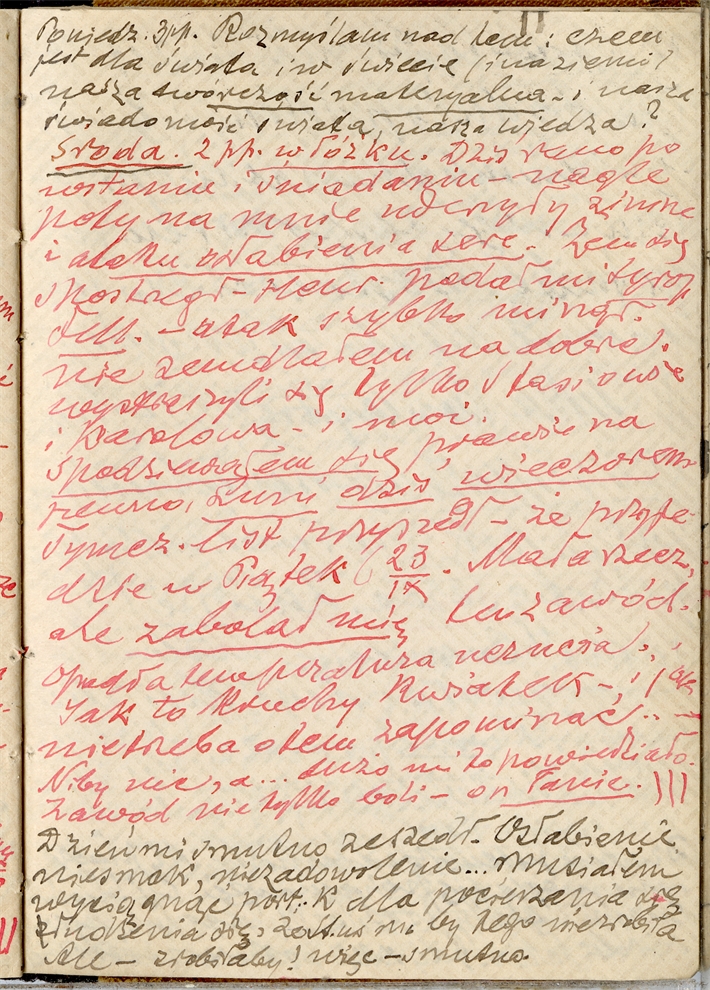 Poniedz. 3pp. Rozmyślam nad tem: czem
jest dla świata i w świecie (i na ziemi)
nasza twórczość materyalna - i nasza
świadomość świata, nasza wiedza?
Środa. 2 pp. w łóżku. Dziś rano po
wstaniu i śniadaniu - nagle
poty na mnie uderzyły zimne
i ataku osłabienia serc. Żem się
spostrzegł - Henr. podał mi syrop
- atak szybko minął.
nie zemdlałem na dobre.
wystraszyli się tylko Stasiowie
i Karolowa - i moi.
Spodziewałem się, prawie na
pewno, Luni dziś wieczorem
Tymcz. list przyszedł - że przyje-
dzie w Piątek (23/IX. Mała rzecz,
ale zabolał mię ten zawód.
opadła temperatura uczucia.
Jak to kruchy kwiatek - ! i jak
nie trzeba o tem zapominać.. -
Niby nic, a ... dużo mi to powiedziało.
Zawód nie tylko boli - on łamie. )))
Dzień mi smutno zeszedł. Osłabienie
niesmak, niezadowolenie... musiałem
wyciągnąć port. K dla pocieszania się
złudzenia się, że by tego nie zrobiła
Ale - zrobiłaby! więc - smutno.